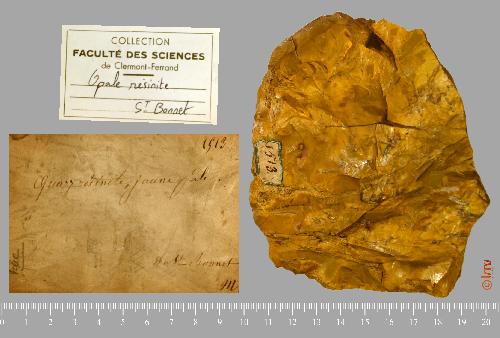 COLLECTION
FACULTÉ DES SCIENCES
de Clermont-Ferrand
Opale résinite
St Bonnet
1513
résinite, jaune
Bonnet
M
1513
0 1 2 3 4 5 6 7 8 9 10 11 12 13 14 15 16 17 18 19 20